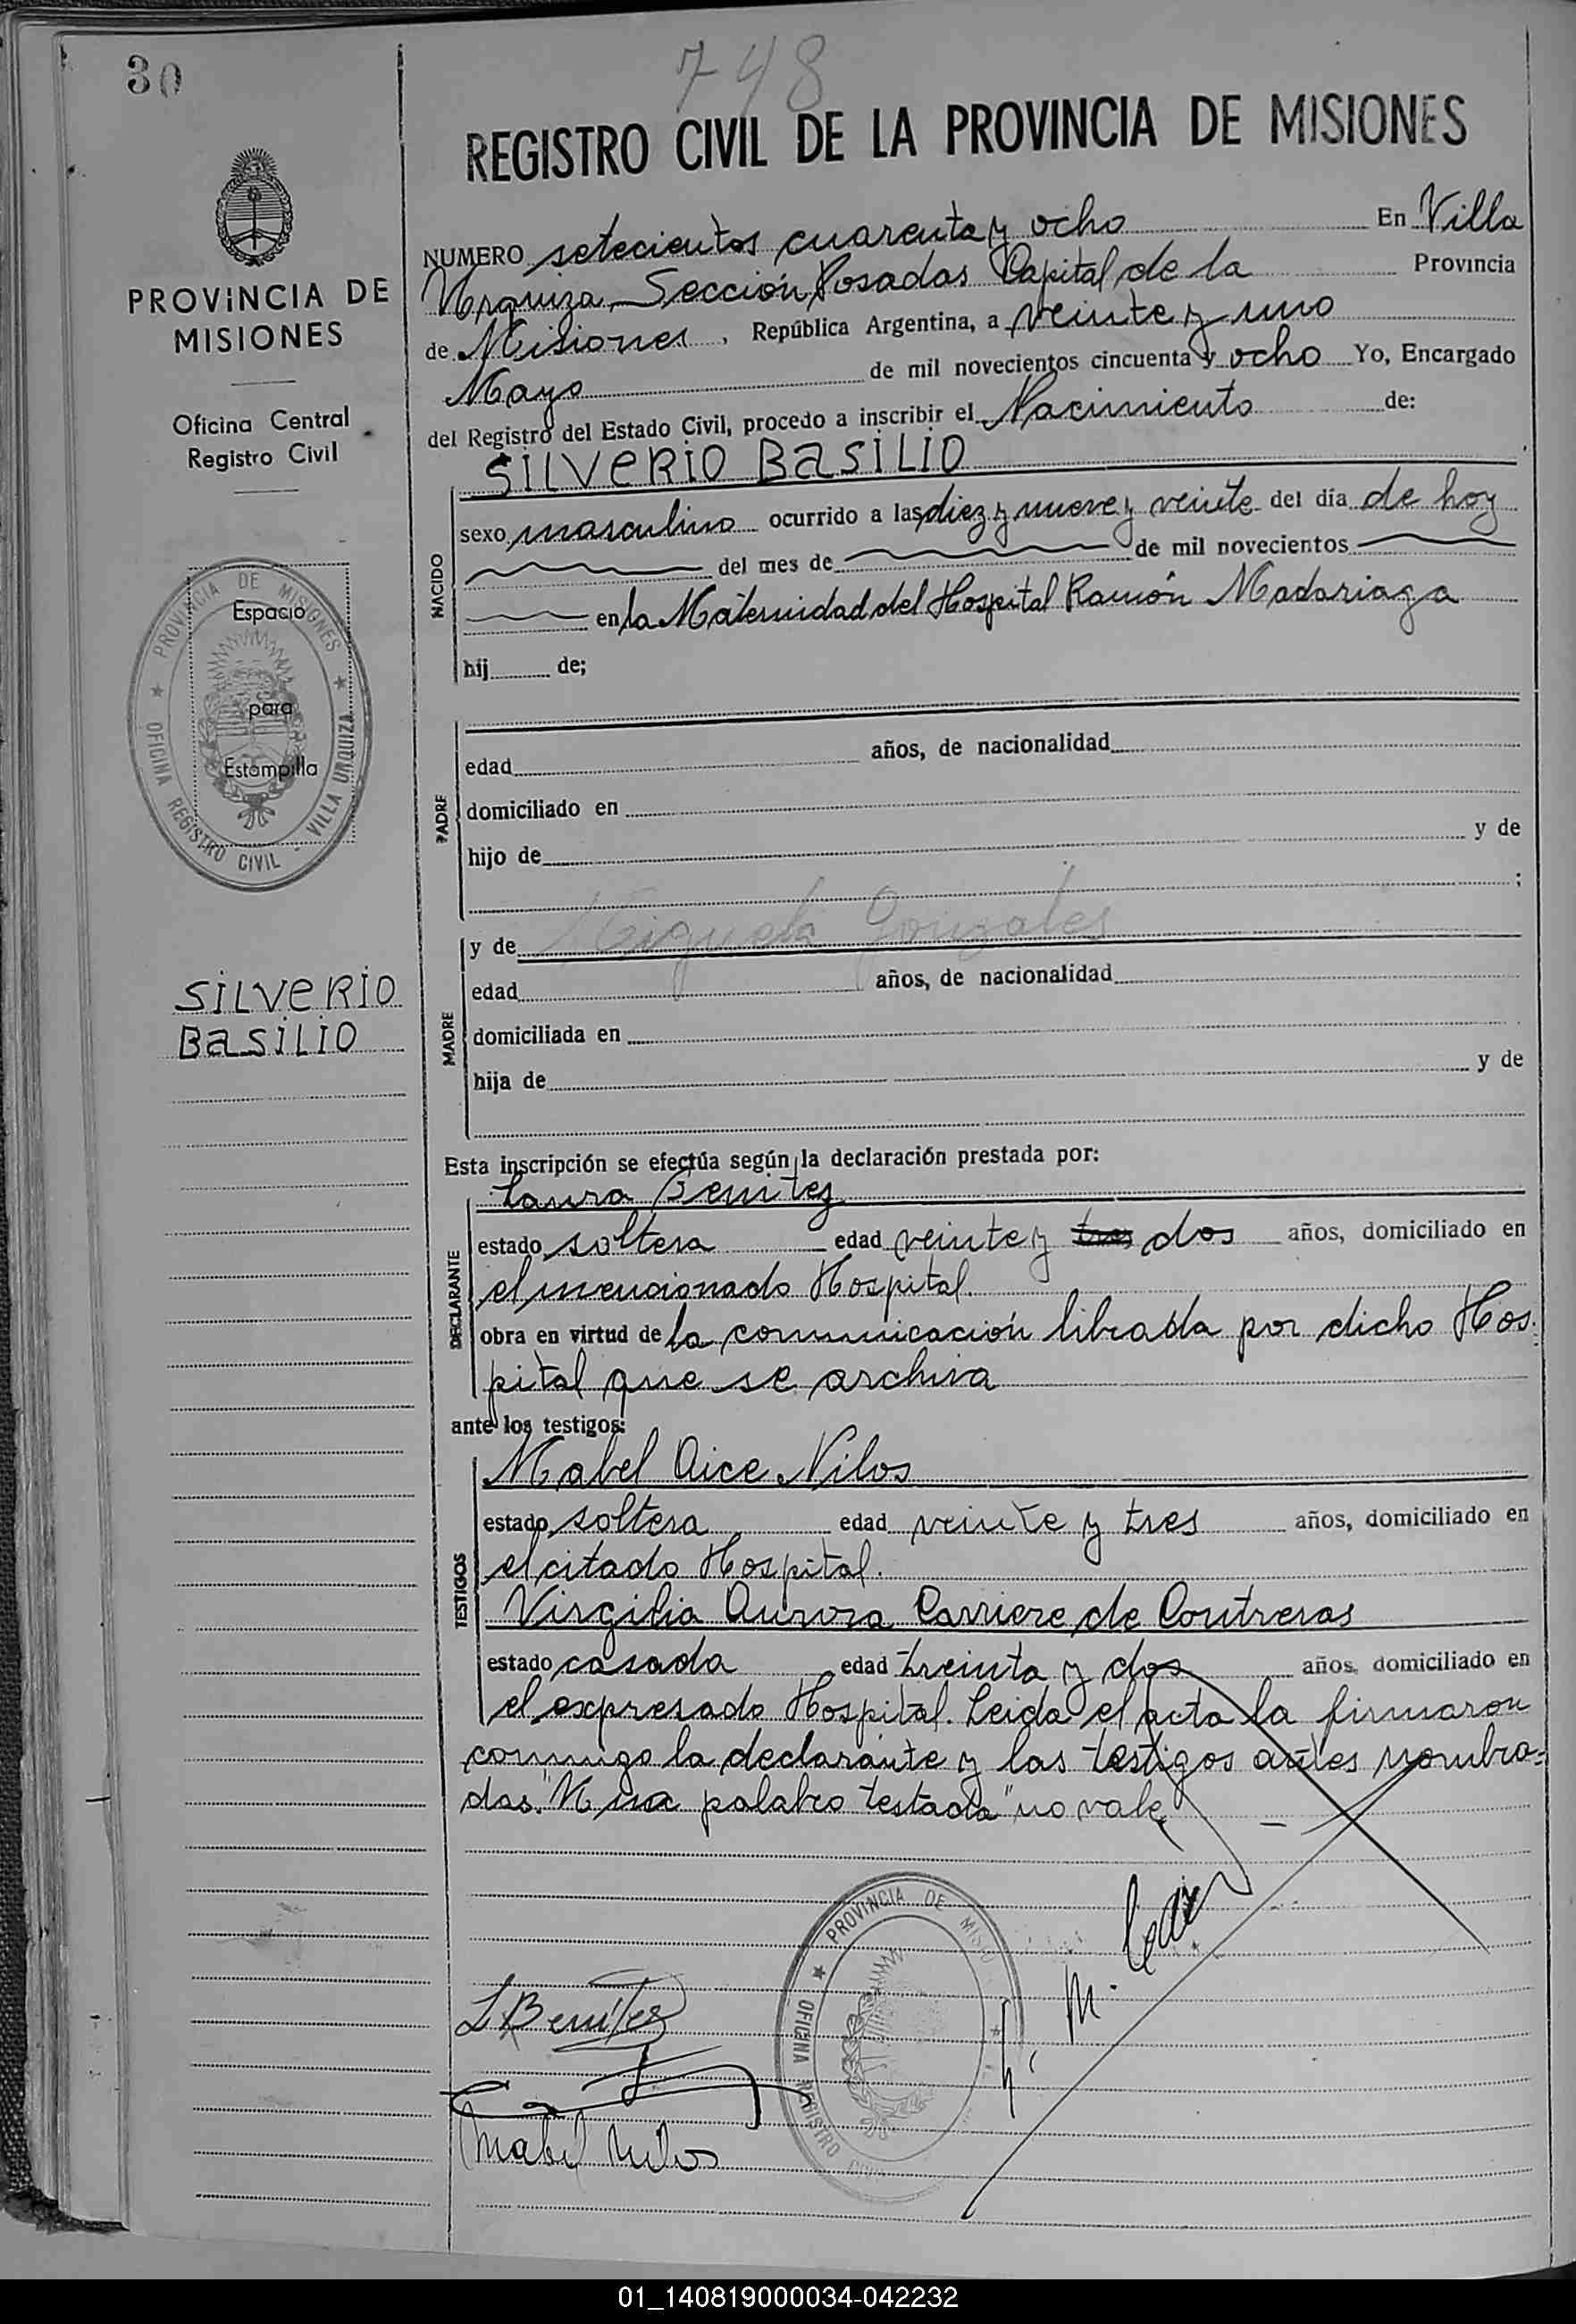 30
748
REGISTRO CIVIL DE LA PROVINCIA DE MISIONES
PROVINCIA DE
MISIONES
Oficina Central
Registro Civil
PROVINCIA DE MISIONES
OFICINA REGISTRO CIVIL - VILLA URQUIZA
Espacio
para
Estampilla
SILVERIO
BASILIO
NUMERO setecientos cuarenta y ocho En Villa
Urquiza, Sección Posadas Capital de la Provincia
de Misiones, República Argentina, a veinte y uno
Mayo de mil novecientos cincuenta y ocho Yo, Encargado
del Registro del Estado Civil, procedo a inscribir el Nacimiento de:
SILVERIO BASILIO
NACIDO
sexo masculino ocurrido a las diez y nueve y veinte del día de hoy
del mes de de mil novecientos
en la Maternidad del Hospital Ramón Madariaga
hij de;
PADRE
edad años, de nacionalidad
domiciliado en
hijo de y de
;
MADRE
y de Miguela Gonzales
edad años, de nacionalidad
domiciliada en
hija de y de
Esta inscripción se efectúa según la declaración prestada por:
DECLARANTE
Laura Benitez
estado soltera edad veinte y tres dos años, domiciliado en
el mencionado Hospital.
obra en virtud de la comunicación librada por dicho Hos-
pital que se archiva
ante los testigos:
TESTIGOS
Mabel Aice Nilos
estado soltera edad veinte y tres años, domiciliado en
el citado Hospital.
Virgilia Aurora Carriere de Contreras
estado casada edad treinta y dos años, domiciliado en
el expresado Hospital. Leida el acta la firmaron
conmigo la declarante y las testigos antes nombra=
das. "Una palabra testada" no vale
PROVINCIA DE MISIO
OFICINA REGISTRO CIVIL
L Benitez
Mabel Nilos
01_140819000034-042232